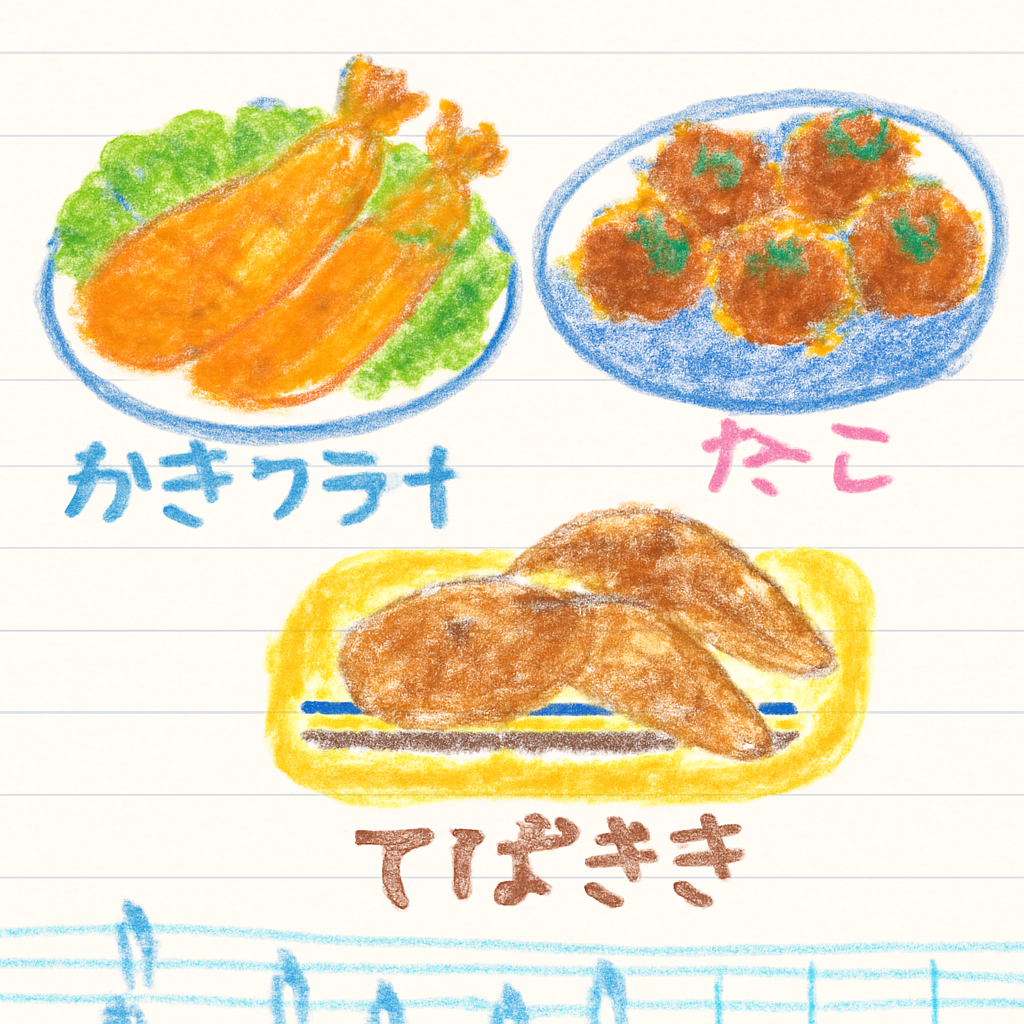 かきフライ
たこ
てばきき